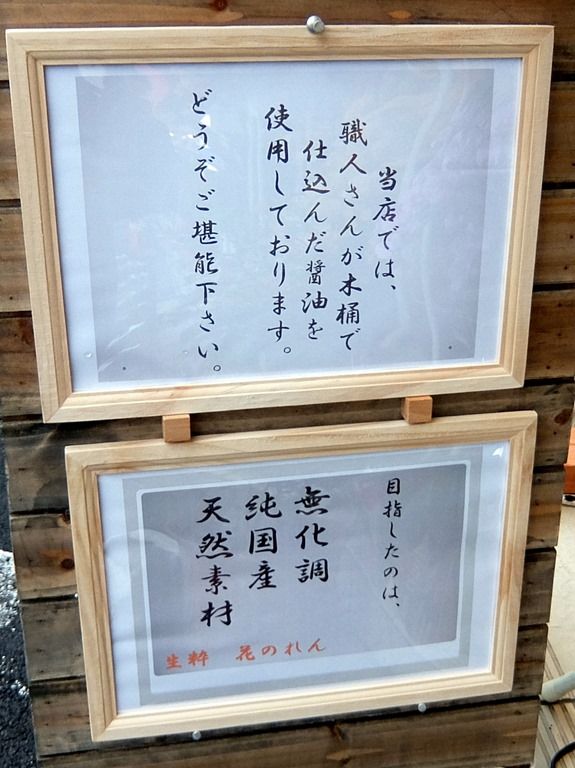 当店では、
職人さんが木桶で
仕込んだ醤油を
使用しております。
どうぞご堪能下さい。
目指したのは、
無化調
純国産
天然素材
生粋 花のれん